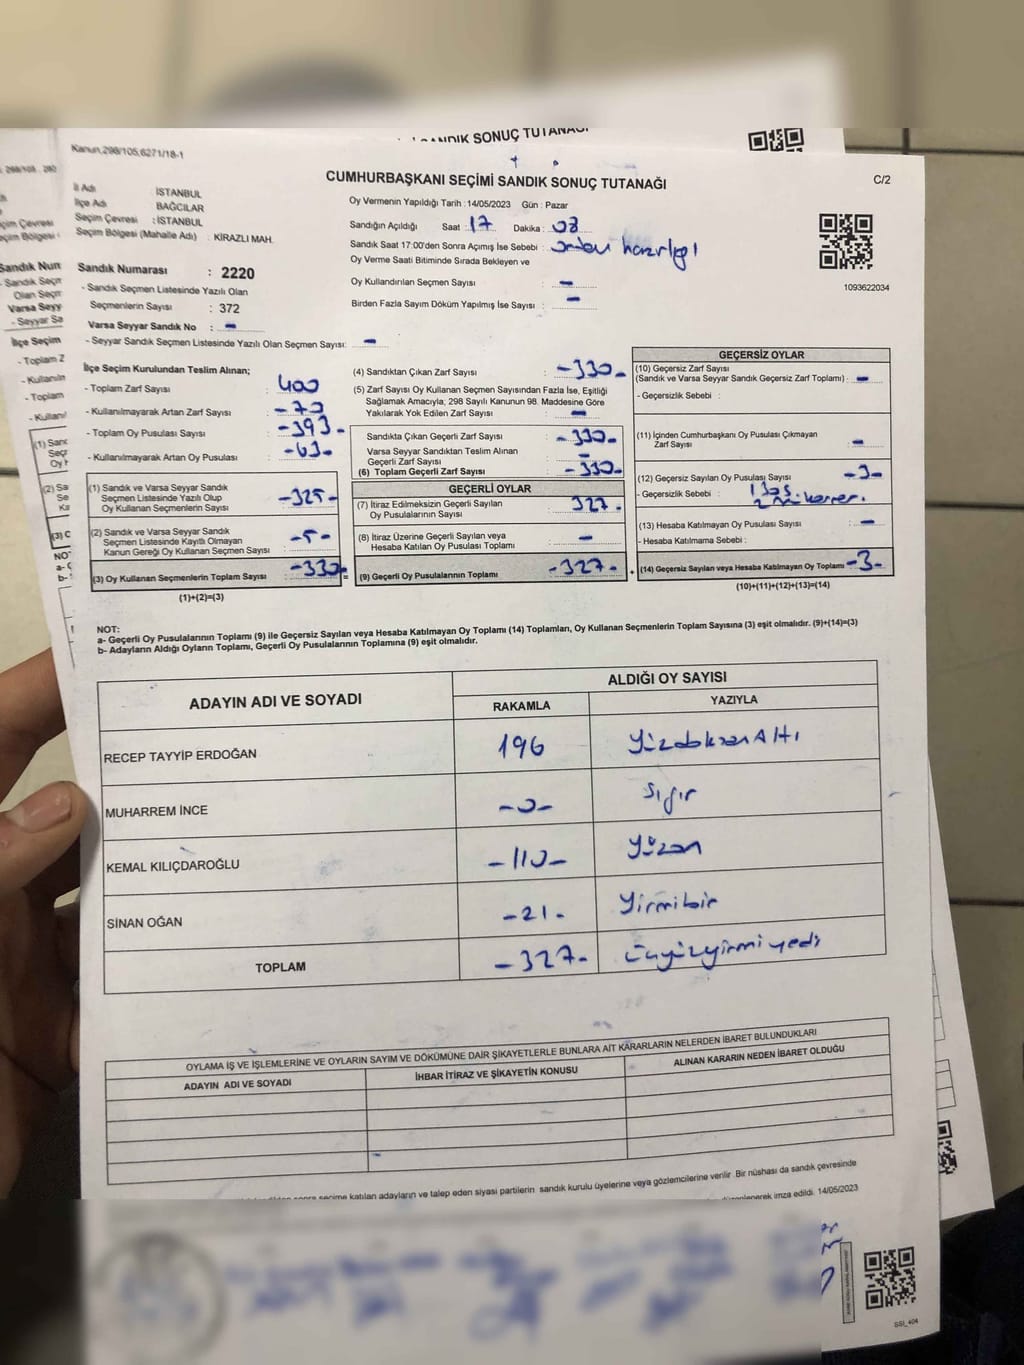 SANDIK SONUÇ TUTANAĞI
Kanun,298/105,6271/18-1
CUMHURBAŞKANI SEÇİMİ SANDIK SONUÇ TUTANAĞI
C/2
İl Adı İSTANBUL
İlçe Adı BAĞCILAR
Seçim Çevresi : İSTANBUL
Seçim Bölgesi (Mahalle Adı) : KİRAZLI MAH.
Oy Vermenin Yapıldığı Tarih : 14/05/2023 Gün : Pazar
Sandığın Açıldığı Saat : 17 Dakika : 08
Sandık Saat 17:00'den Sonra Açımış İse Sebebi : hazırlığı
Oy Verme Saati Bitiminde Sırada Bekleyen ve
Oy Kullandırılan Seçmen Sayısı : -
Birden Fazla Sayım Döküm Yapılmış İse Sayısı : -
1093622034
Sandık Numarası : 2220
- Sandık Seçmen Listesinde Yazılı Olan
Seçmenlerin Sayısı : 372
Varsa Seyyar Sandık No : -
- Seyyar Sandık Seçmen Listesinde Yazılı Olan Seçmen Sayısı: -
İlçe Seçim Kurulundan Teslim Alınan;
- Toplam Zarf Sayısı : 400
- Kullanılmayarak Artan Zarf Sayısı : -70
- Toplam Oy Pusulası Sayısı : -393-
- Kullanılmayarak Artan Oy Pusulası : -63-
(1) Sandık ve Varsa Seyyar Sandık
Seçmen Listesinde Yazılı Olup
Oy Kullanan Seçmenlerin Sayısı : -325-
(2) Sandık ve Varsa Seyyar Sandık
Seçmen Listesinde Kayıtlı Olmayan
Kanun Gereği Oy Kullanan Seçmen Sayısı : -5-
(3) Oy Kullanan Seçmenlerin Toplam Sayısı : -330-
(1)+(2)=(3)
(4) Sandıktan Çıkan Zarf Sayısı : -330-
(5) Zarf Sayısı Oy Kullanan Seçmen Sayısından Fazla İse, Eşitliği
Sağlamak Amacıyla; 298 Sayılı Kanunun 98. Maddesine Göre
Yakılarak Yok Edilen Zarf Sayısı : -
Sandıkta Çıkan Geçerli Zarf Sayısı : -330-
Varsa Seyyar Sandıktan Teslim Alınan
Geçerli Zarf Sayısı : -
(6) Toplam Geçerli Zarf Sayısı : -330-
GEÇERLİ OYLAR
(7) İtiraz Edilmeksizin Geçerli Sayılan
Oy Pusulalarının Sayısı : 327-
(8) İtiraz Üzerine Geçerli Sayılan veya
Hesaba Katılan Oy Pusulası Toplamı : -
(9) Geçerli Oy Pusulalarının Toplamı : -327-
GEÇERSİZ OYLAR
(10) Geçersiz Zarf Sayısı
(Sandık ve Varsa Seyyar Sandık Geçersiz Zarf Toplamı) : -
- Geçersizlik Sebebi :
(11) İçinden Cumhurbaşkanı Oy Pusulası Çıkmayan
Zarf Sayısı : -
(12) Geçersiz Sayılan Oy Pusulası Sayısı : -3-
- Geçersizlik Sebebi : 1 boş.
2
(13) Hesaba Katılmayan Oy Pusulası Sayısı : -
- Hesaba Katılmama Sebebi :
(14) Geçersiz Sayılan veya Hesaba Katılmayan Oy Toplamı : -3-
(10)+(11)+(12)+(13)=(14)
NOT:
a- Geçerli Oy Pusulalarının Toplamı (9) ile Geçersiz Sayılan veya Hesaba Katılmayan Oy Toplamı (14) Toplamları, Oy Kullanan Seçmenlerin Toplam Sayısına (3) eşit olmalıdır. (9)+(14)=(3)
b- Adayların Aldığı Oyların Toplamı, Geçerli Oy Pusulalarının Toplamına (9) eşit olmalıdır.
ADAYIN ADI VE SOYADI
ALDIĞI OY SAYISI
RAKAMLA YAZIYLA
RECEP TAYYİP ERDOĞAN 196 YüzdoksanAltı
MUHARREM İNCE -0- Sıfır
KEMAL KILIÇDAROĞLU -110- Yüzon
SİNAN OĞAN -21- Yirmibir
TOPLAM -327- Üçyüzyirmiyedi
OYLAMA İŞ VE İŞLEMLERİNE VE OYLARIN SAYIM VE DÖKÜMÜNE DAİR ŞİKAYETLERLE BUNLARA AİT KARARLARIN NELERDEN İBARET BULUNDUKLARI
ADAYIN ADI VE SOYADI İHBAR İTİRAZ VE ŞİKAYETİN KONUSU ALINAN KARARIN NEDEN İBARET OLDUĞU
sonra seçime katılan adayların ve talep eden siyasi partilerin sandık kurulu üyelerine veya gözlemcilerine verilir. Bir nüshası da sandık çevresinde
düzenlenerek imza edildi. 14/05/2023
SSI_404